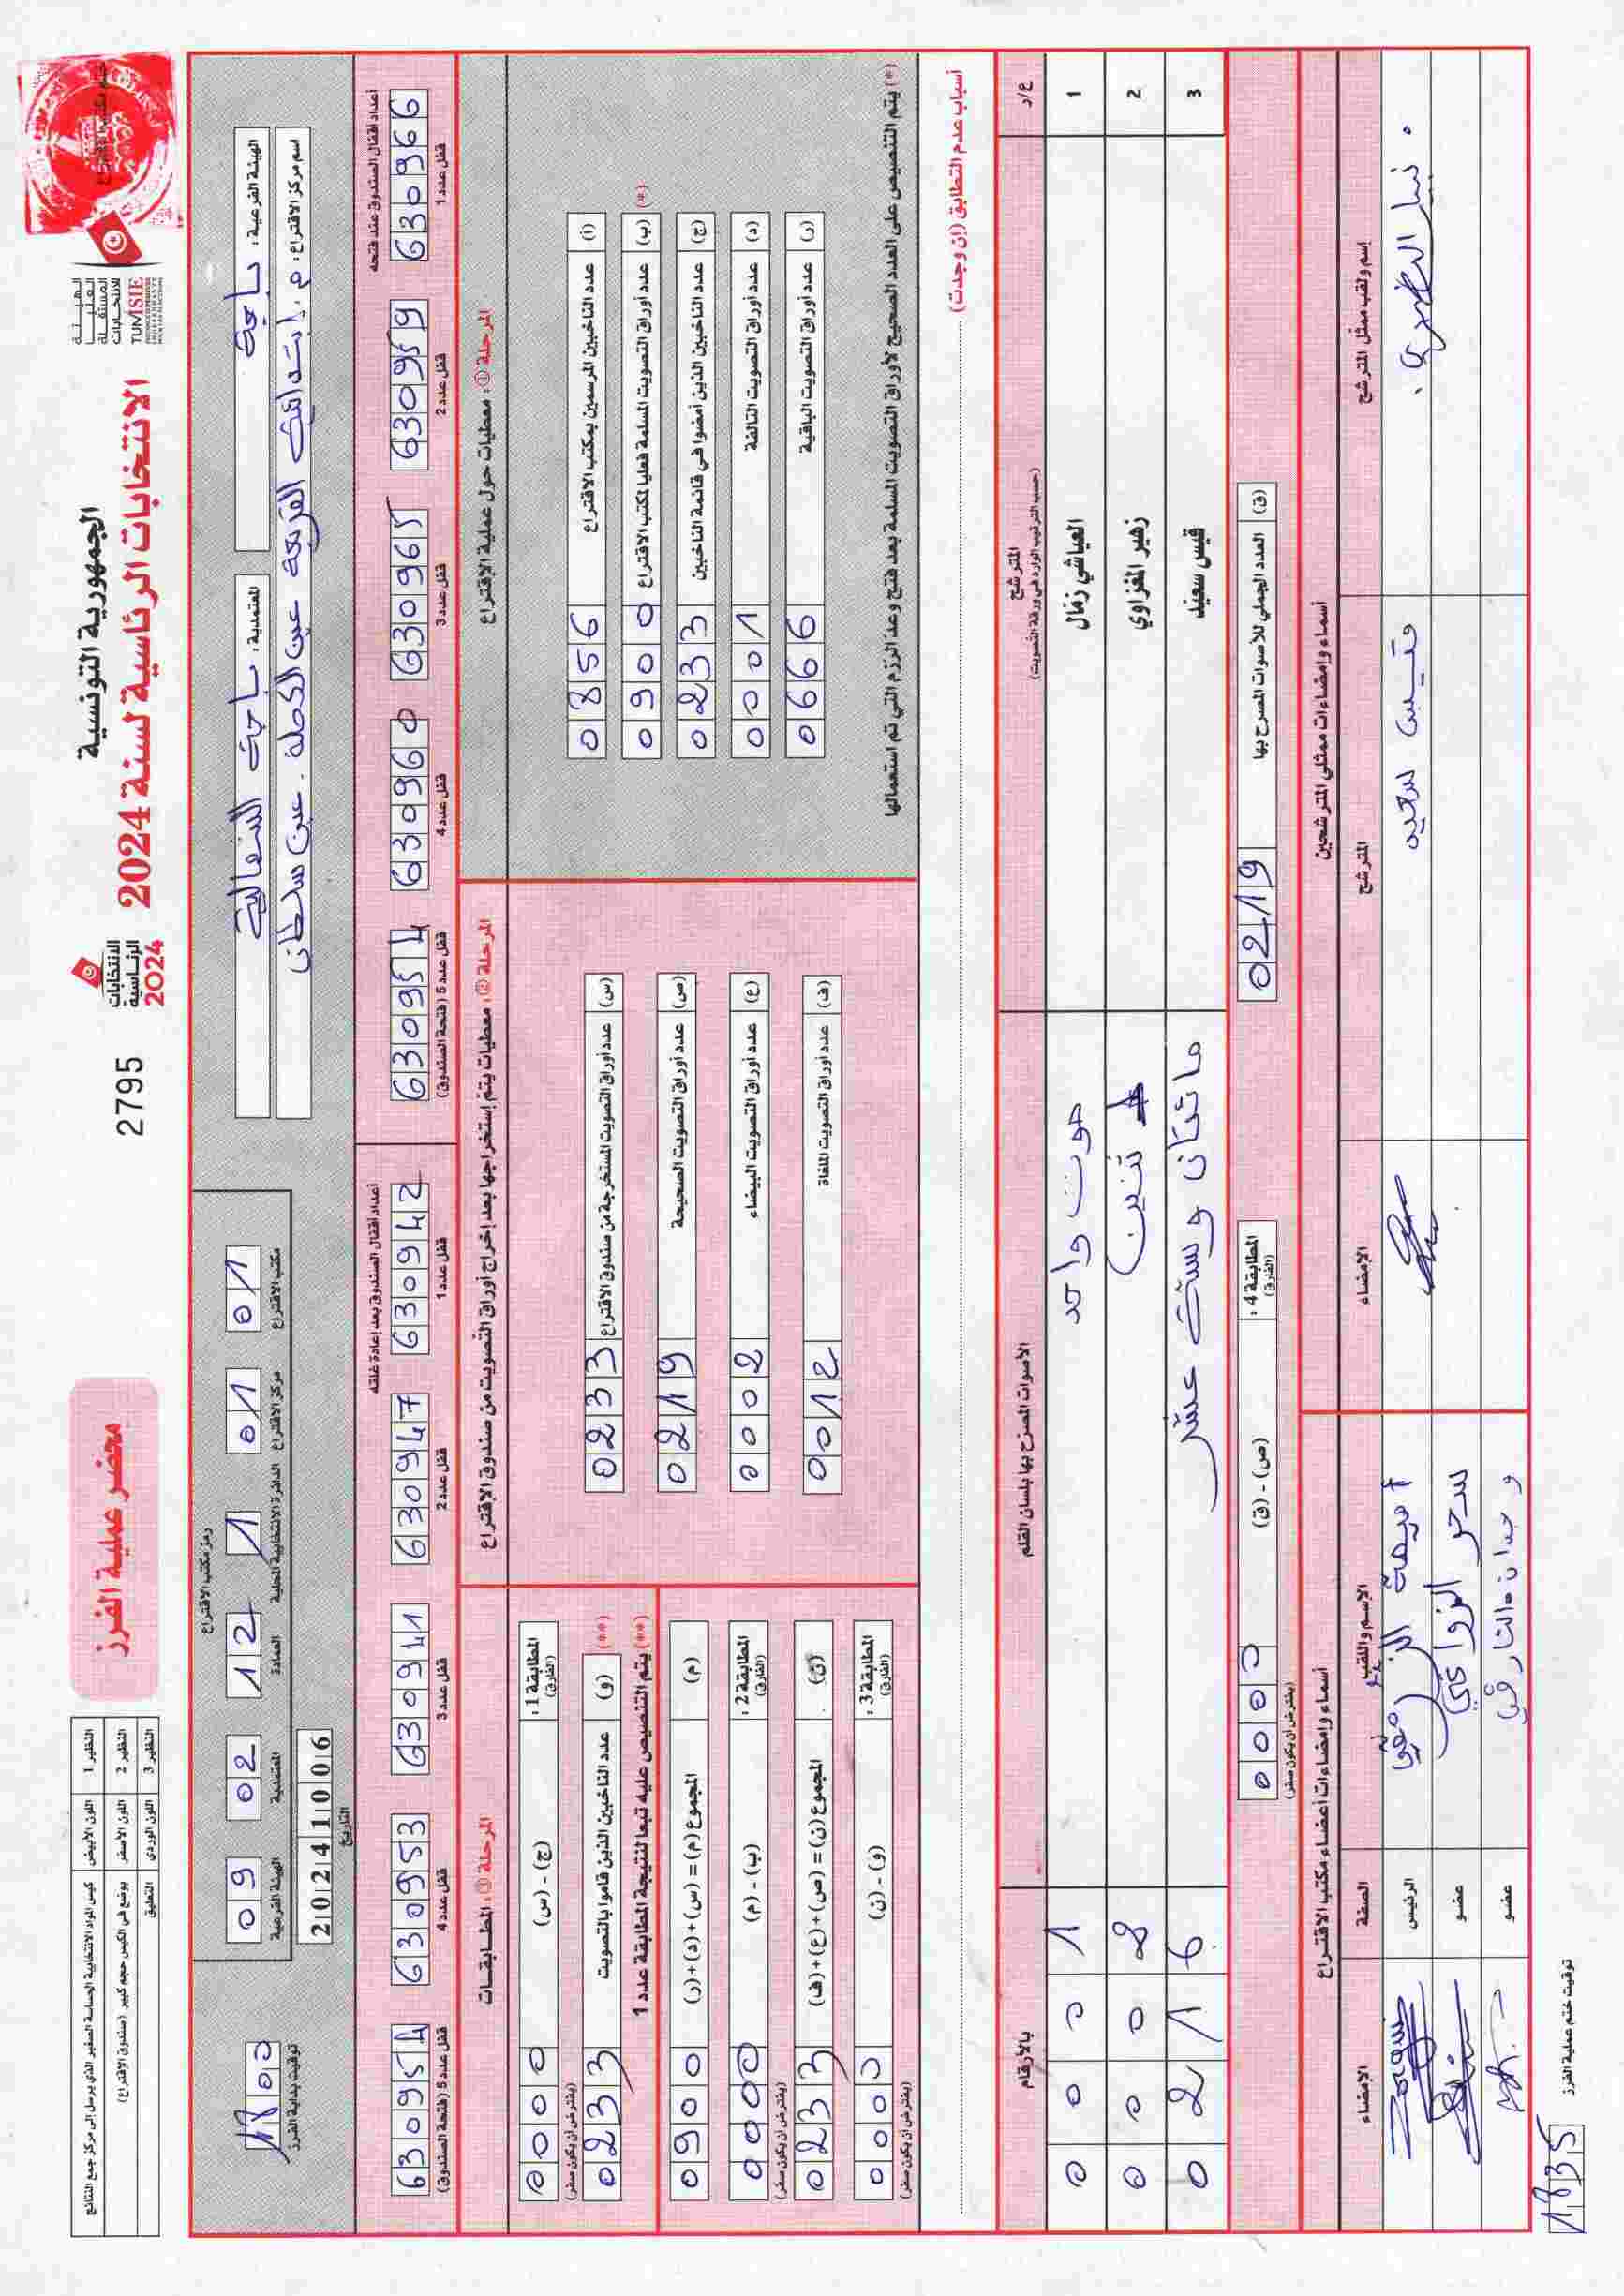 الجمهورية التونسية
الانتخابات الرئاسية لسنة 2024
الهيئة
العليا
المستقلة
للانتخابات
TUNISIE
الانتخابات
الرئاسية
2024
2795
محضر عملية الفرز
النظير 1 اللون الأبيض كيس المواد الانتخابية الحساسة الصغير الذي يرسل إلى مركز جمع النتائج
النظير 2 اللون الأصفر يوضع في الكيس حجم كبير (صندوق الإقتراع)
النظير 3 اللون الوردي التعليق
الهيئة الفرعية: باجة
المعتمدية: باجة الشمالية
اسم مركز الاقتراع: م. ابتدائية القريعة عين الكحلة. عين سلطان
رمز مكتب الاقتراع
مكتب الاقتراع 01
مركز الاقتراع 01
الدائرة الانتخابية المحلية 1
العمادة 12
المعتمدية 02
الهيئة الفرعية 09
20241006
التاريخ
1800
توقيت بداية الفرز
أعداد أقفال الصندوق عند فتحه
630966 قفل عدد 1
630959 قفل عدد 2
630965 قفل عدد 3
630960 قفل عدد 4
630954 قفل عدد 5 (فتحة الصندوق)
أعداد أقفال الصندوق بعد إعادة غلقه
630942 قفل عدد 1
630947 قفل عدد 2
630941 قفل عدد 3
630953 قفل عدد 4
630954 قفل عدد 5 (فتحة الصندوق)
المرحلة ①: معطيات حول عملية الإقتراع
(أ) عدد الناخبين المرسمين بمكتب الاقتراع 0856
(*) (ب) عدد أوراق التصويت المسلمة فعليا لمكتب الاقتراع 0900
(ج) عدد الناخبين الذين أمضوا في قائمة الناخبين 0233
(د) عدد أوراق التصويت التالفة 0001
(ر) عدد أوراق التصويت الباقية 0666
(*) يتم التنصيص على العدد الصحيح لأوراق التصويت المسلمة بعد فتح وعد الرزم التي تم استعمالها
المرحلة ②: معطيات يتم إستخراجها بعد إخراج أوراق التصويت من صندوق الإقتراع
(س) عدد أوراق التصويت المستخرجة من صندوق الاقتراع 0233
(ص) عدد أوراق التصويت الصحيحة 0219
(ع) عدد أوراق التصويت البيضاء 0002
(ف) عدد أوراق التصويت الملغاة 0012
المرحلة ③: المطابقات
المطابقة 1: (الفارق) (ج) - (س) 0000
(يفترض أن يكون صفر)
(**) (و) عدد الناخبين الذين قاموا بالتصويت 0233
(**) يتم التنصيص عليه تبعا لنتيجة المطابقة عدد 1
(م) المجموع (م) = (س) + (د) + (ر) 0900
المطابقة 2: (الفارق) (ب) - (م) 0000
(يفترض أن يكون صفر)
(ن) المجموع (ن) = (ص) + (ع) + (ف) 0233
المطابقة 3: (الفارق) (و) - (ن) 0000
(يفترض أن يكون صفر)
أسباب عدم التطابق (إن وجدت)
ع/د المترشح (حسب الترتيب الوارد في ورقة التصويت) الأصوات المصرح بها بلسان القلم بالأرقام
1 العياشي زمال صوت واحد 0001
2 زهير المغزاوي اثنين 0002
3 قيس سعيد مائتان وستة عشر 0216
(ق) العدد الجملي للأصوات المصرح بها 0219
المطابقة 4: (الفارق) (ص) - (ق) 0000
(يفترض أن يكون صفر)
أسماء وإمضاءات ممثلي المترشحين
إسم ولقب ممثل المترشح المترشح الإمضاء
نبيل قيس سعيد
أسماء وإمضاءات أعضاء مكتب الاقتراع
الإسم واللقب الصفة الإمضاء
الرئيس
سحر الزواغي عضو
عضو
توقيت ختم عملية الفرز
1835